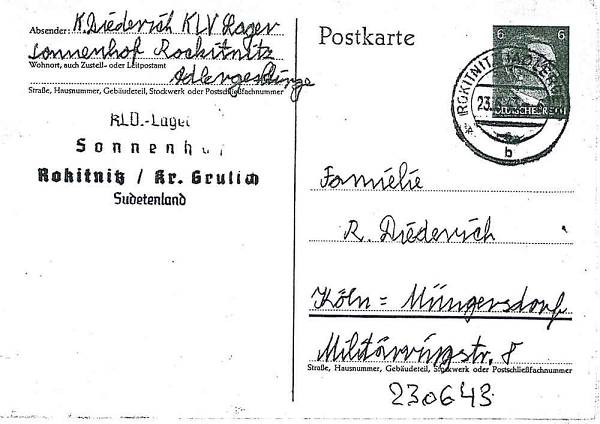 Absender: K. Diederich KLV Lager
Sonnenhof Rockitnitz
Wohnort, auch Zustell- oder Leitpostamt
Adlergebirge
Straße, Hausnummer, Gebäudeteil, Stockwerk oder Postschließfachnummer
KLV.-Lager
Sonnenhof
Rokitnitz / Kr. Grulich
Sudetenland
Postkarte
6 6
DEUTSCHES REICH
ROKITNITZ (ADLERGEB
23.6.43
b
Familie
R. Diederich
Köln = Müngersdorf
Militärringstr. 8
Straße, Hausnummer, Gebäudeteil, Stockwerk oder Postschließfachnummer
230643